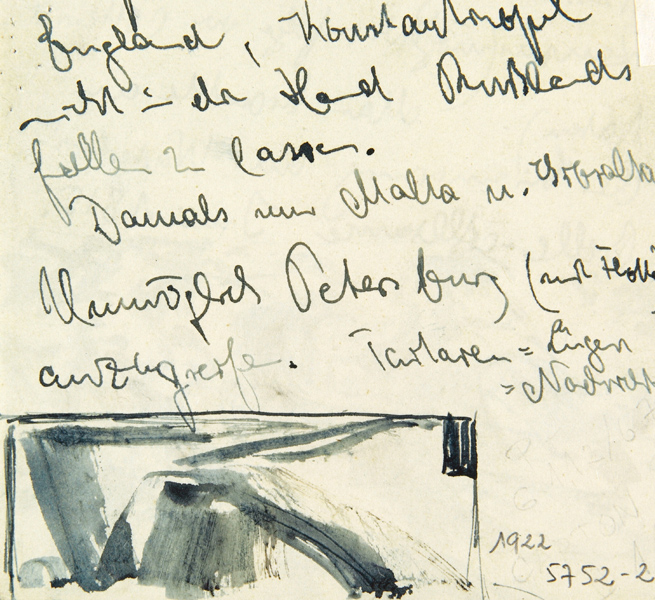 England, Konstantinopel
nicht in der Hand Rußlands
fallen zu lassen.
Damals nur Malta u. Gibralta
Unmöglich Petersburg (mit
anzugreifen. Tartaren = Lügen
1922
5752-2